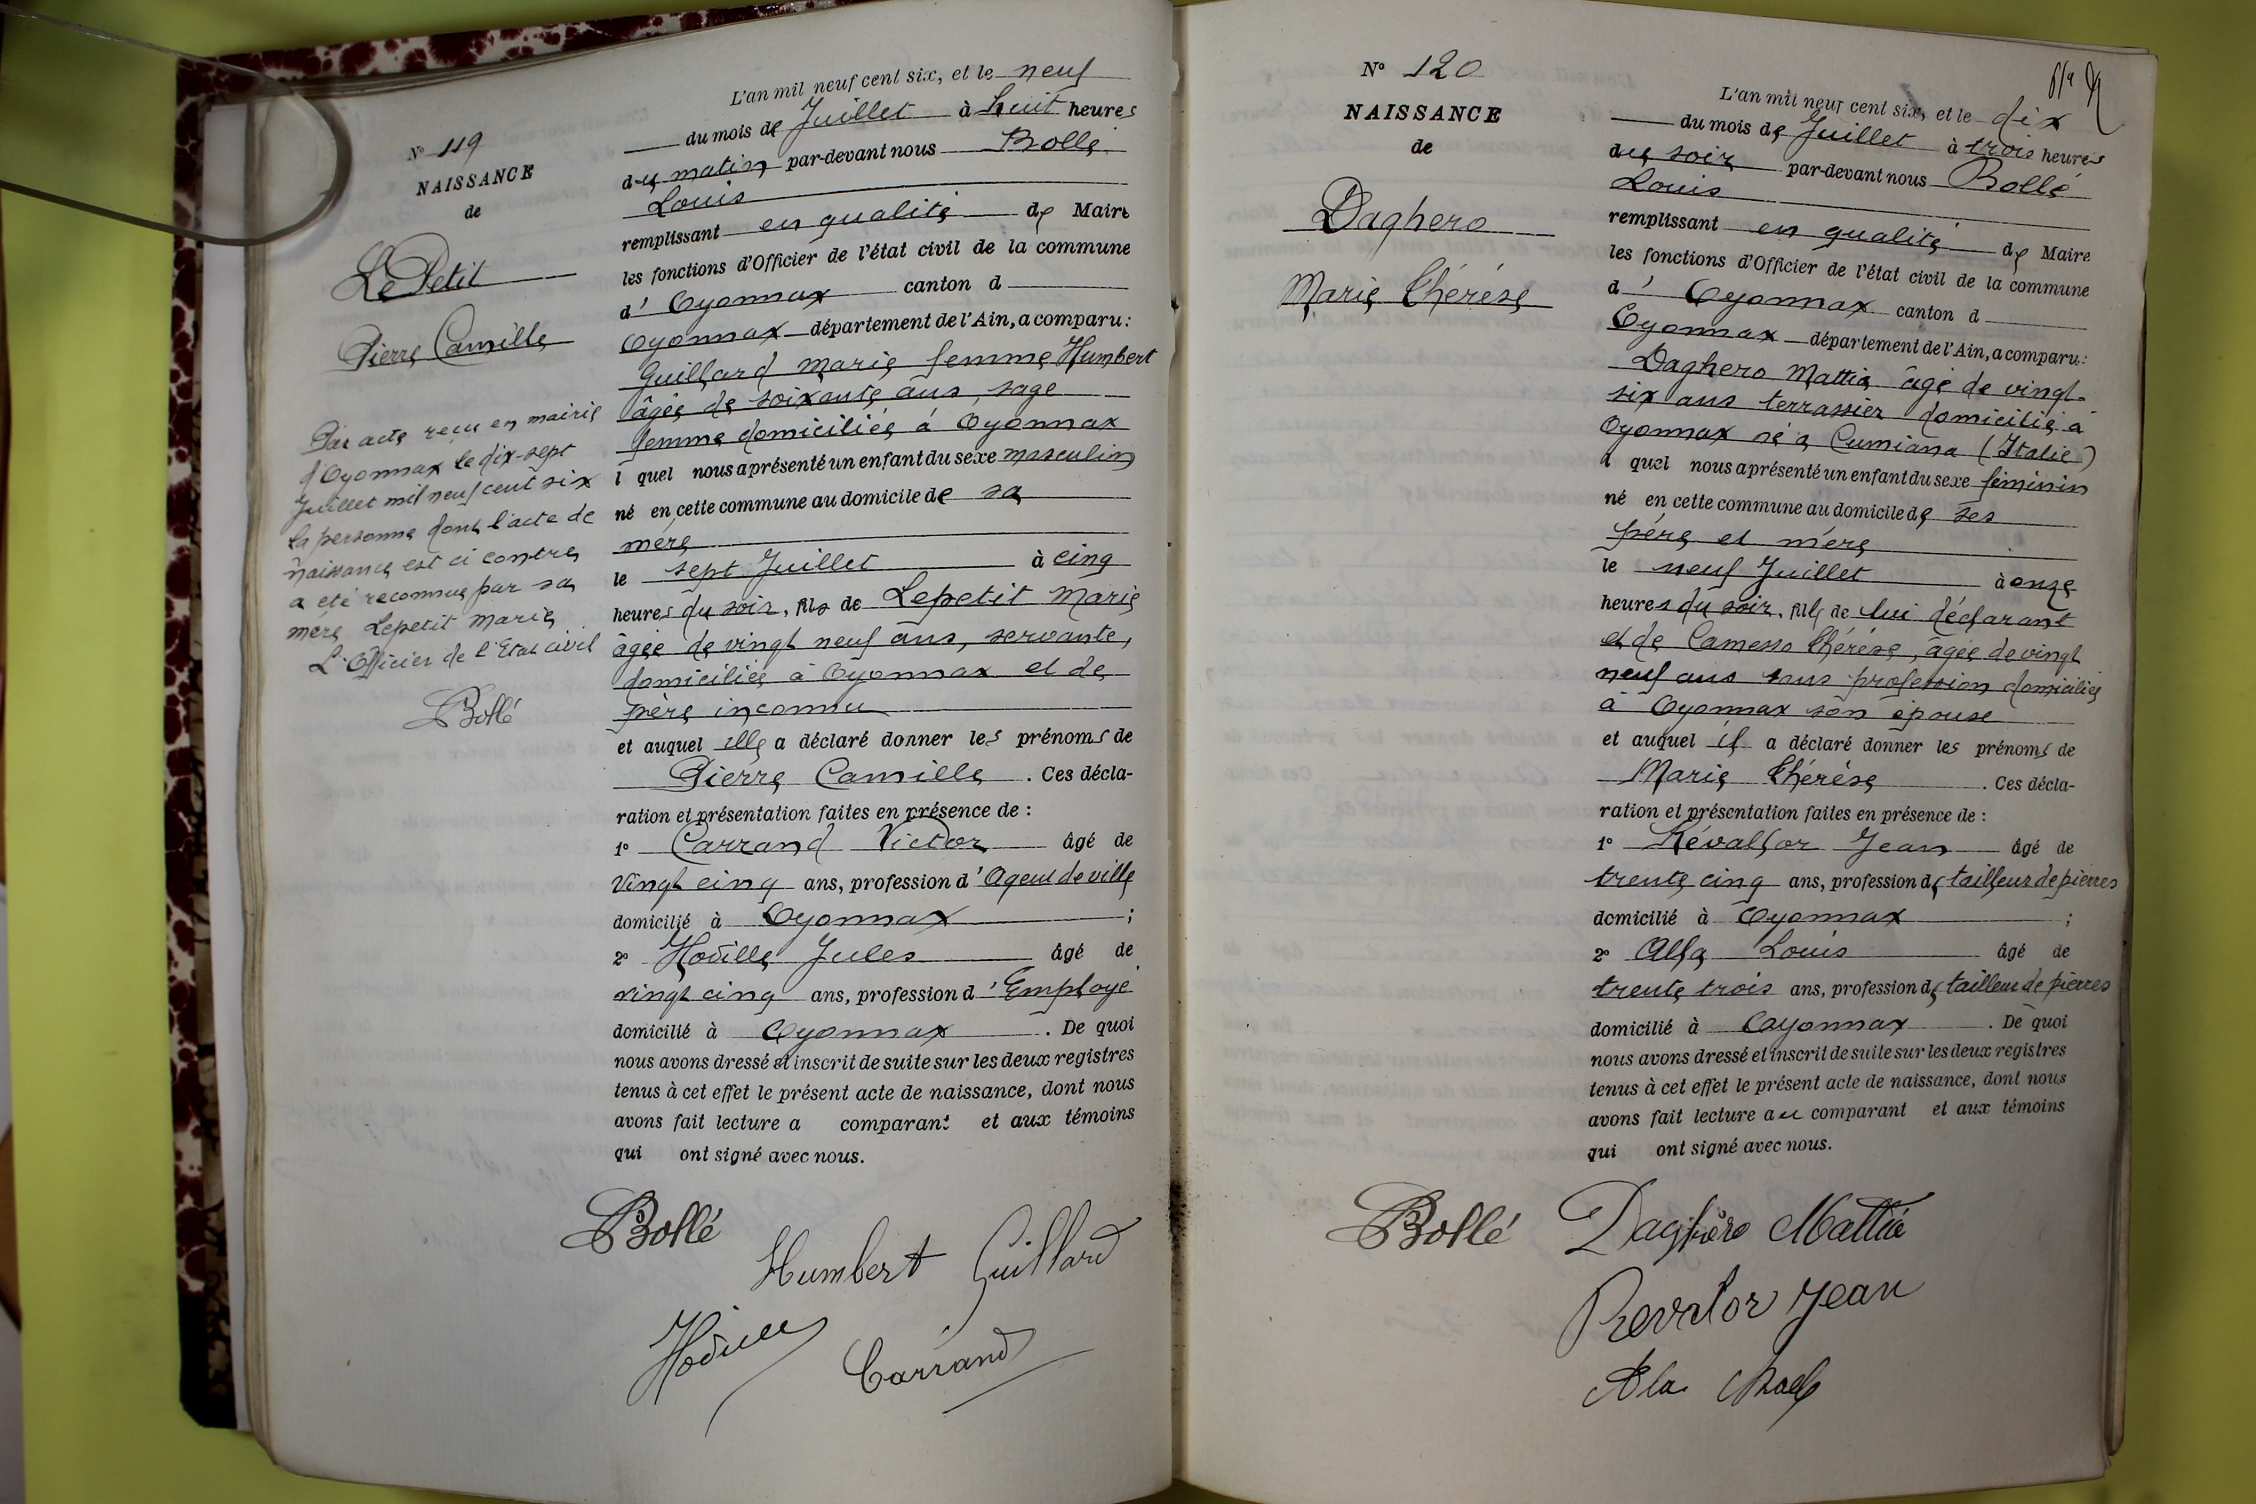 N° 119
NAISSANCE
de
Le Petit
Pierre Camille
Par acte reçu en mairie
d'Oyonnax le dix-sept
Juillet mil neuf cent six
la personne dont l'acte de
naissance est ci contre
a été reconnue par sa
mère Lepetit Marie
L'Officier de l'Etat civil
Bollé
L'an mil neuf cent six, et le neuf
du mois de Juillet à huit heures
du matin par-devant nous Bollé
Louis
remplissant en qualité de Maire
les fonctions d'Officier de l'état civil de la commune
d' Oyonnax canton d
Oyonnax département de l'Ain, a comparu:
Guillard Marie femme Humbert
âgée de soixante ans, sage
femme domiciliée à Oyonnax
l quel nous a présenté un enfant du sexe masculin
né en cette commune au domicile de sa
mère
le sept Juillet à cinq
heures du soir, fils de Lepetit Marie
âgée de vingt neuf ans, servante,
domiciliée à Oyonnax et de
père inconnu
et auquel elle a déclaré donner les prénoms de
Pierre Camille . Ces décla-
ration et présentation faites en présence de :
1° Carrand Victor âgé de
vingt cinq ans, profession d'Agent de ville
domicilié à Oyonnax ;
2° Hoülle Jules âgé de
vingt cinq ans, profession d'Employé
domicilié à Oyonnax . De quoi
nous avons dressé et inscrit de suite sur les deux registres
tenus à cet effet le présent acte de naissance, dont nous
avons fait lecture a comparant et aux témoins
qui ont signé avec nous.
Bollé
Humbert Guillard
Carrand
N° 120
NAISSANCE
de
Daghero
Marie Thérèse
L'an mil neuf cent six, et le dix
du mois de Juillet à trois heures
du soir par-devant nous Bollé
Louis
remplissant en qualité de Maire
les fonctions d'Officier de l'état civil de la commune
d' Oyonnax canton d
Oyonnax département de l'Ain, a comparu:
Daghero Mattia âgé de vingt-
six ans terrassier domicilié à
Oyonnax né à Cumiana (Italie)
l quel nous a présenté un enfant du sexe féminin
né en cette commune au domicile de ses
père et mère
le neuf Juillet à onze
heures du soir, fille de lui déclarant
et de Camesso Thérèse, âgée de vingt
neuf ans sans profession domiciliée
à Oyonnax son épouse
et auquel il a déclaré donner les prénoms de
Marie Thérèse . Ces décla-
ration et présentation faites en présence de :
1° Révalor Jean âgé de
trente cinq ans, profession de tailleur de pierres
domicilié à Oyonnax ;
2° Alla Louis âgé de
trente trois ans, profession de tailleur de pierres
domicilié à Oyonnax . De quoi
nous avons dressé et inscrit de suite sur les deux registres
tenus à cet effet le présent acte de naissance, dont nous
avons fait lecture au comparant et aux témoins
qui ont signé avec nous.
Bollé Daghero Mattia
Revalor Jean